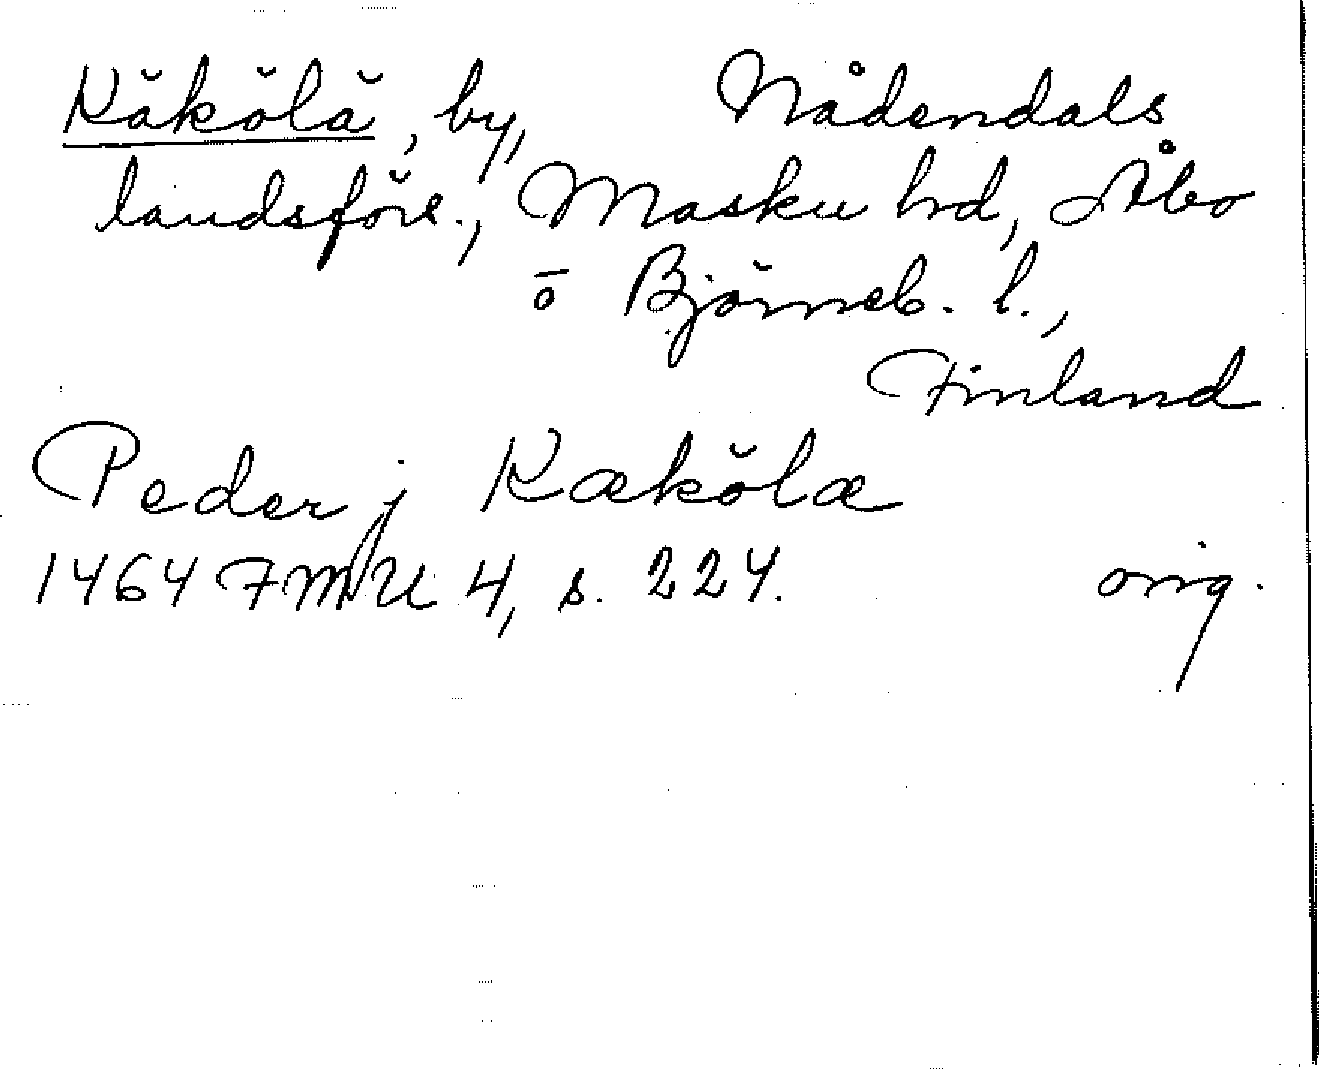 Käkölä, by, Nådendals
landsförs., Masku hd, Åbo
o Björneb. l.,
Finland
Peder j Kækölæ
1464 FMU 4, s. 224. orig.